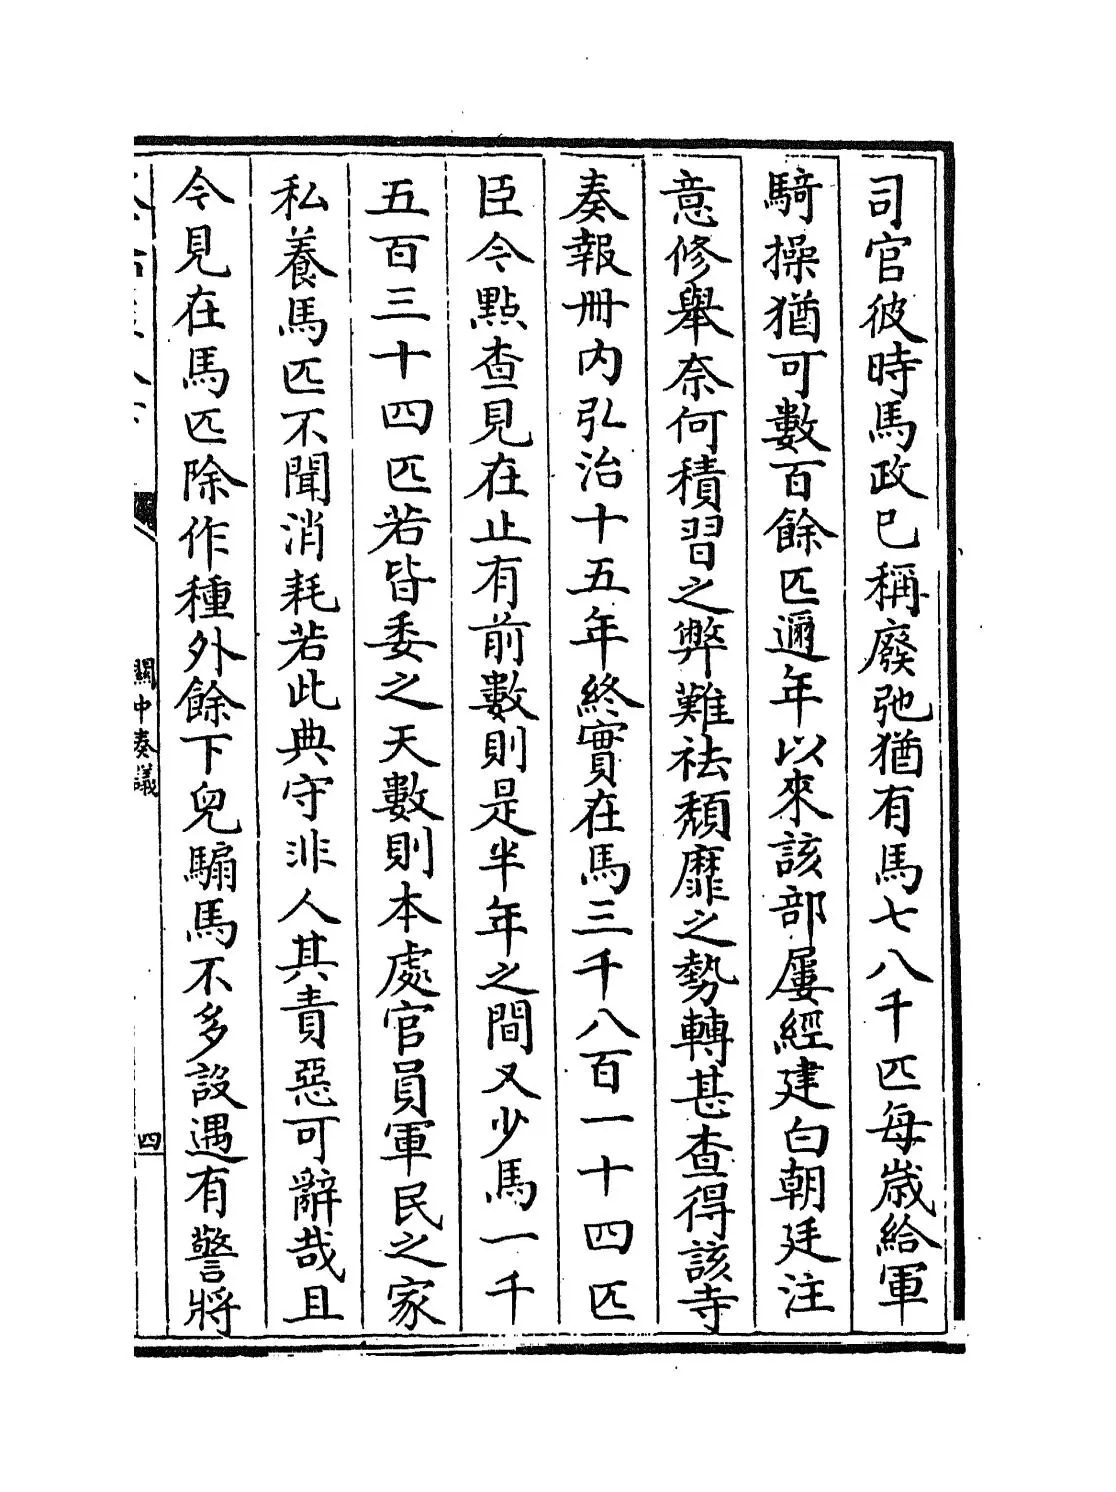 司官彼時馬政已稱廢弛猶有馬七八千匹每歲給軍
騎操猶可數百餘匹邇年以來該部屢經建白朝廷注
意修舉奈何積習之弊難袪頽靡之勢轉甚查得該寺
奏報冊内弘治十五年終實在馬三千八百一十四匹
臣令點查見在止有前數則是半年之間又少馬一千
五百三十四匹若皆委之天數則本處官員軍民之家
私養馬匹不聞消耗若此典守非人其責惡可辭哉且
今見在馬匹除作種外餘下兒騸馬不多設遇有警將
關中奏議
四